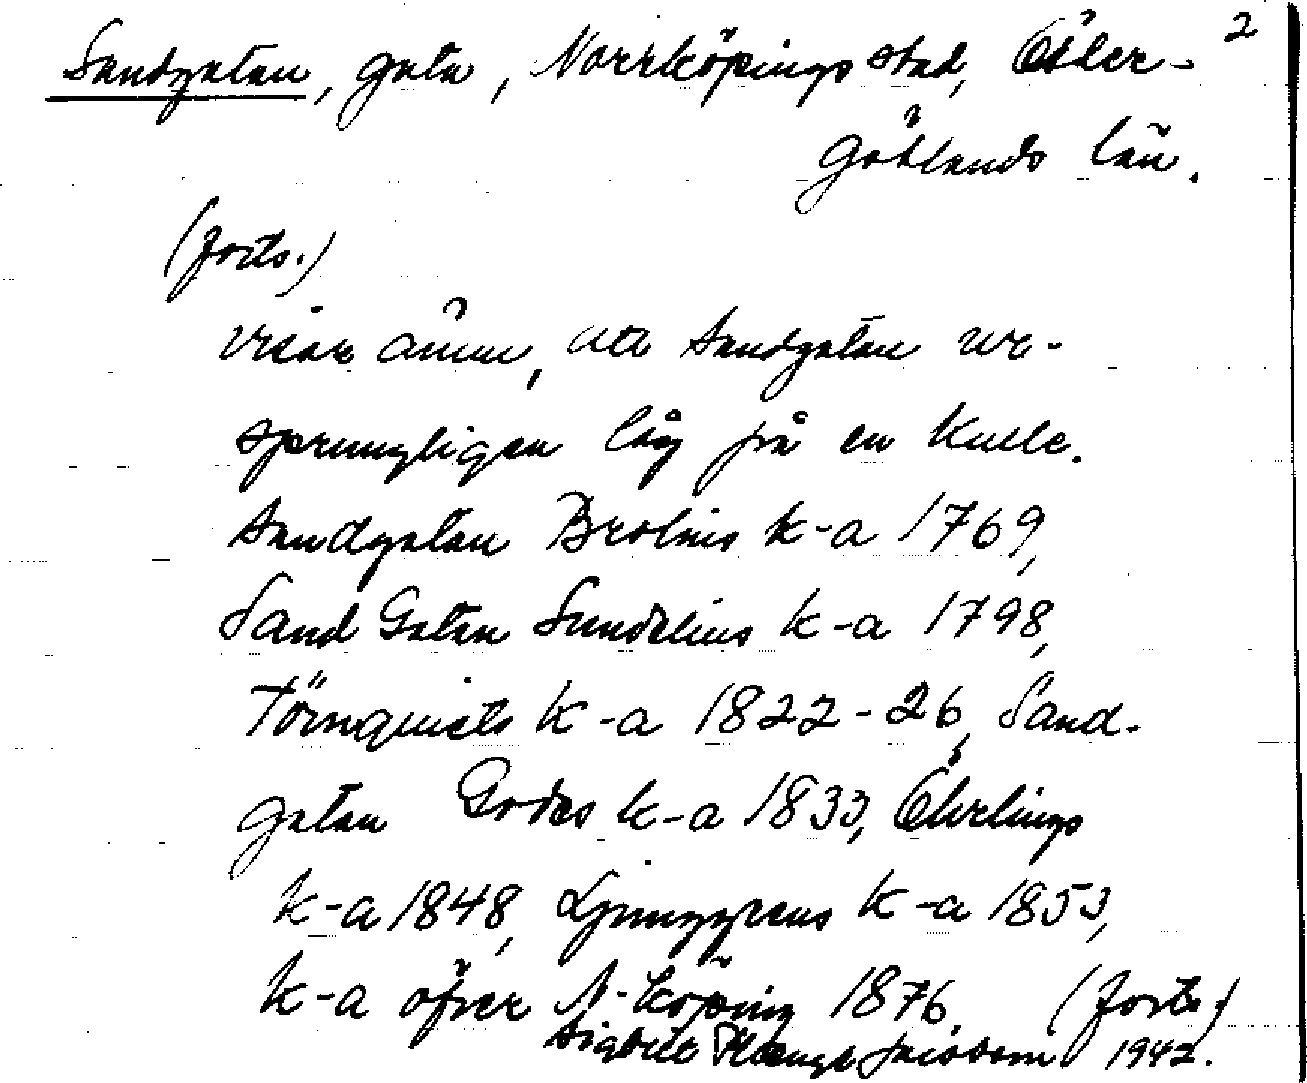 2
Sandgatan, gata, Norrköpings stad, Öster-
götlands län.
(forts.)
visar ännu, att Sandgatan ur-
sprungligen låg på en kulle.
Sandgatan Brolins k-a 1769,
Sand Gatan Sundelius k-a 1798,
Törnquists k-a 1822-26, Sand-
gatan Godes k-a 1833, Öhrlings
k-a 1848, Ljunggrens k-a 1853,
k-a öfver N-köping 1876. (forts.)
1942.